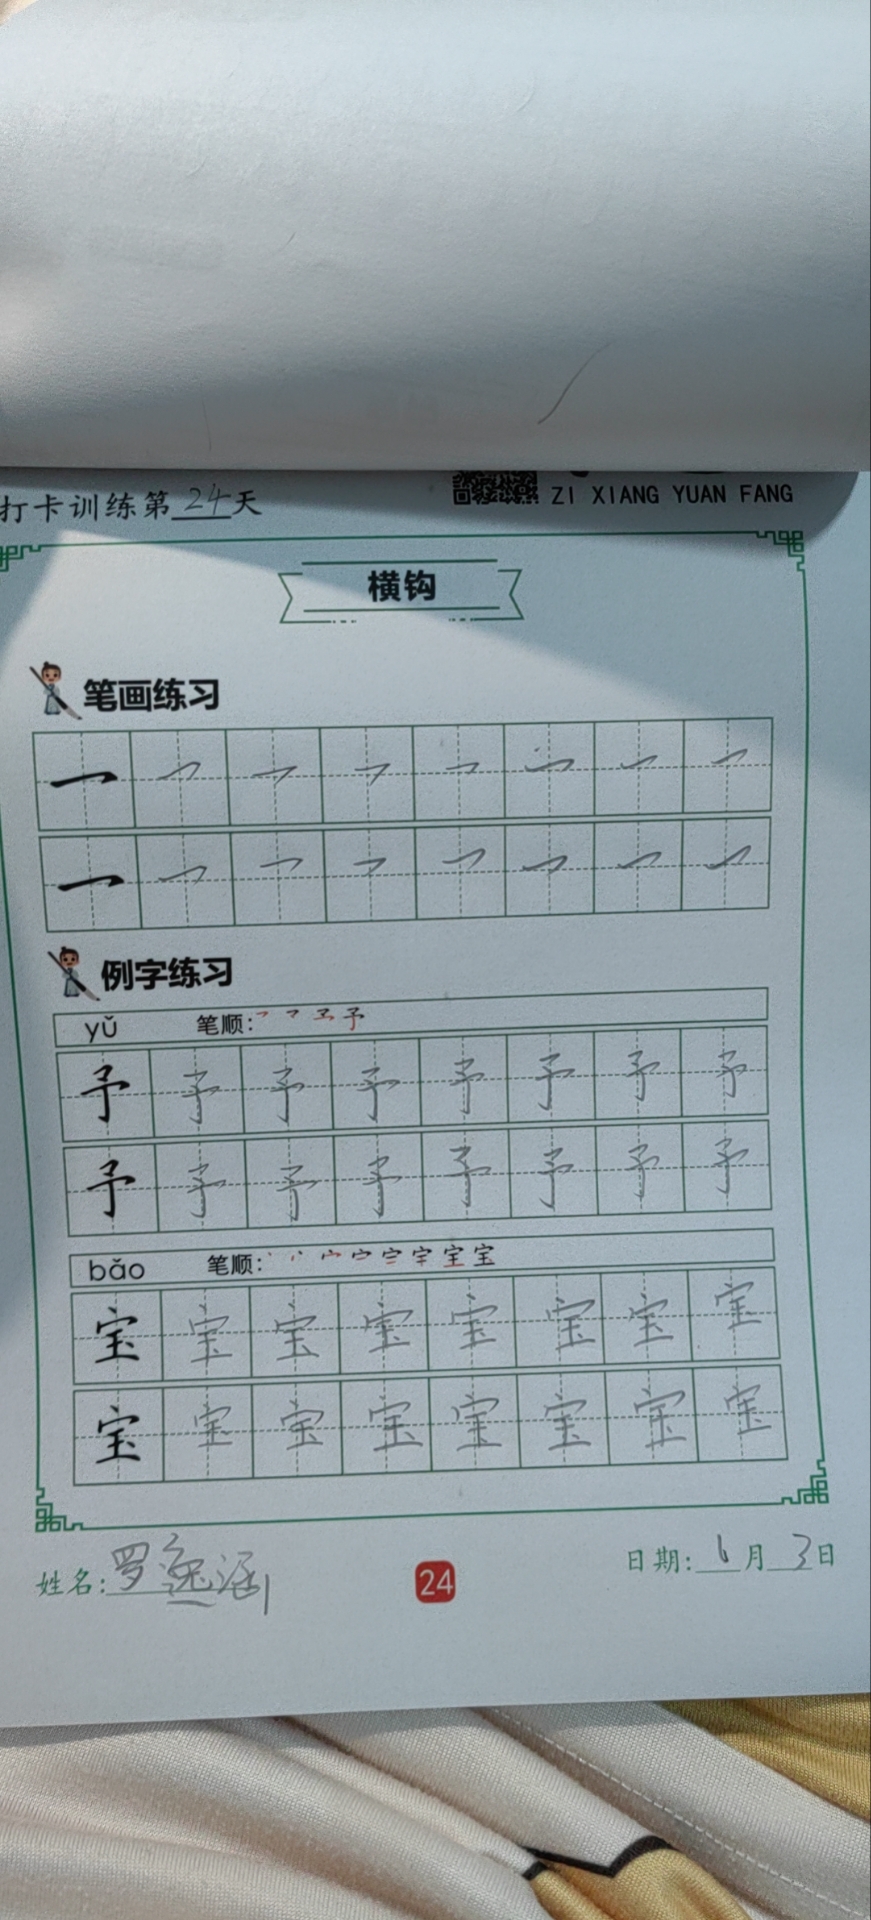 打卡训练第24天 ZI XIANG YUAN FANG
横钩
笔画练习
例字练习
yǔ 笔顺:
予 予 予 予 予 予 予 予
予 予 予 予 予 予 予 予
bǎo 笔顺:
宝 宝 宝 宝 宝 宝 宝 宝
宝 宝 宝 宝 宝 宝 宝 宝
姓名:罗逸涵 24 日期:6月3日